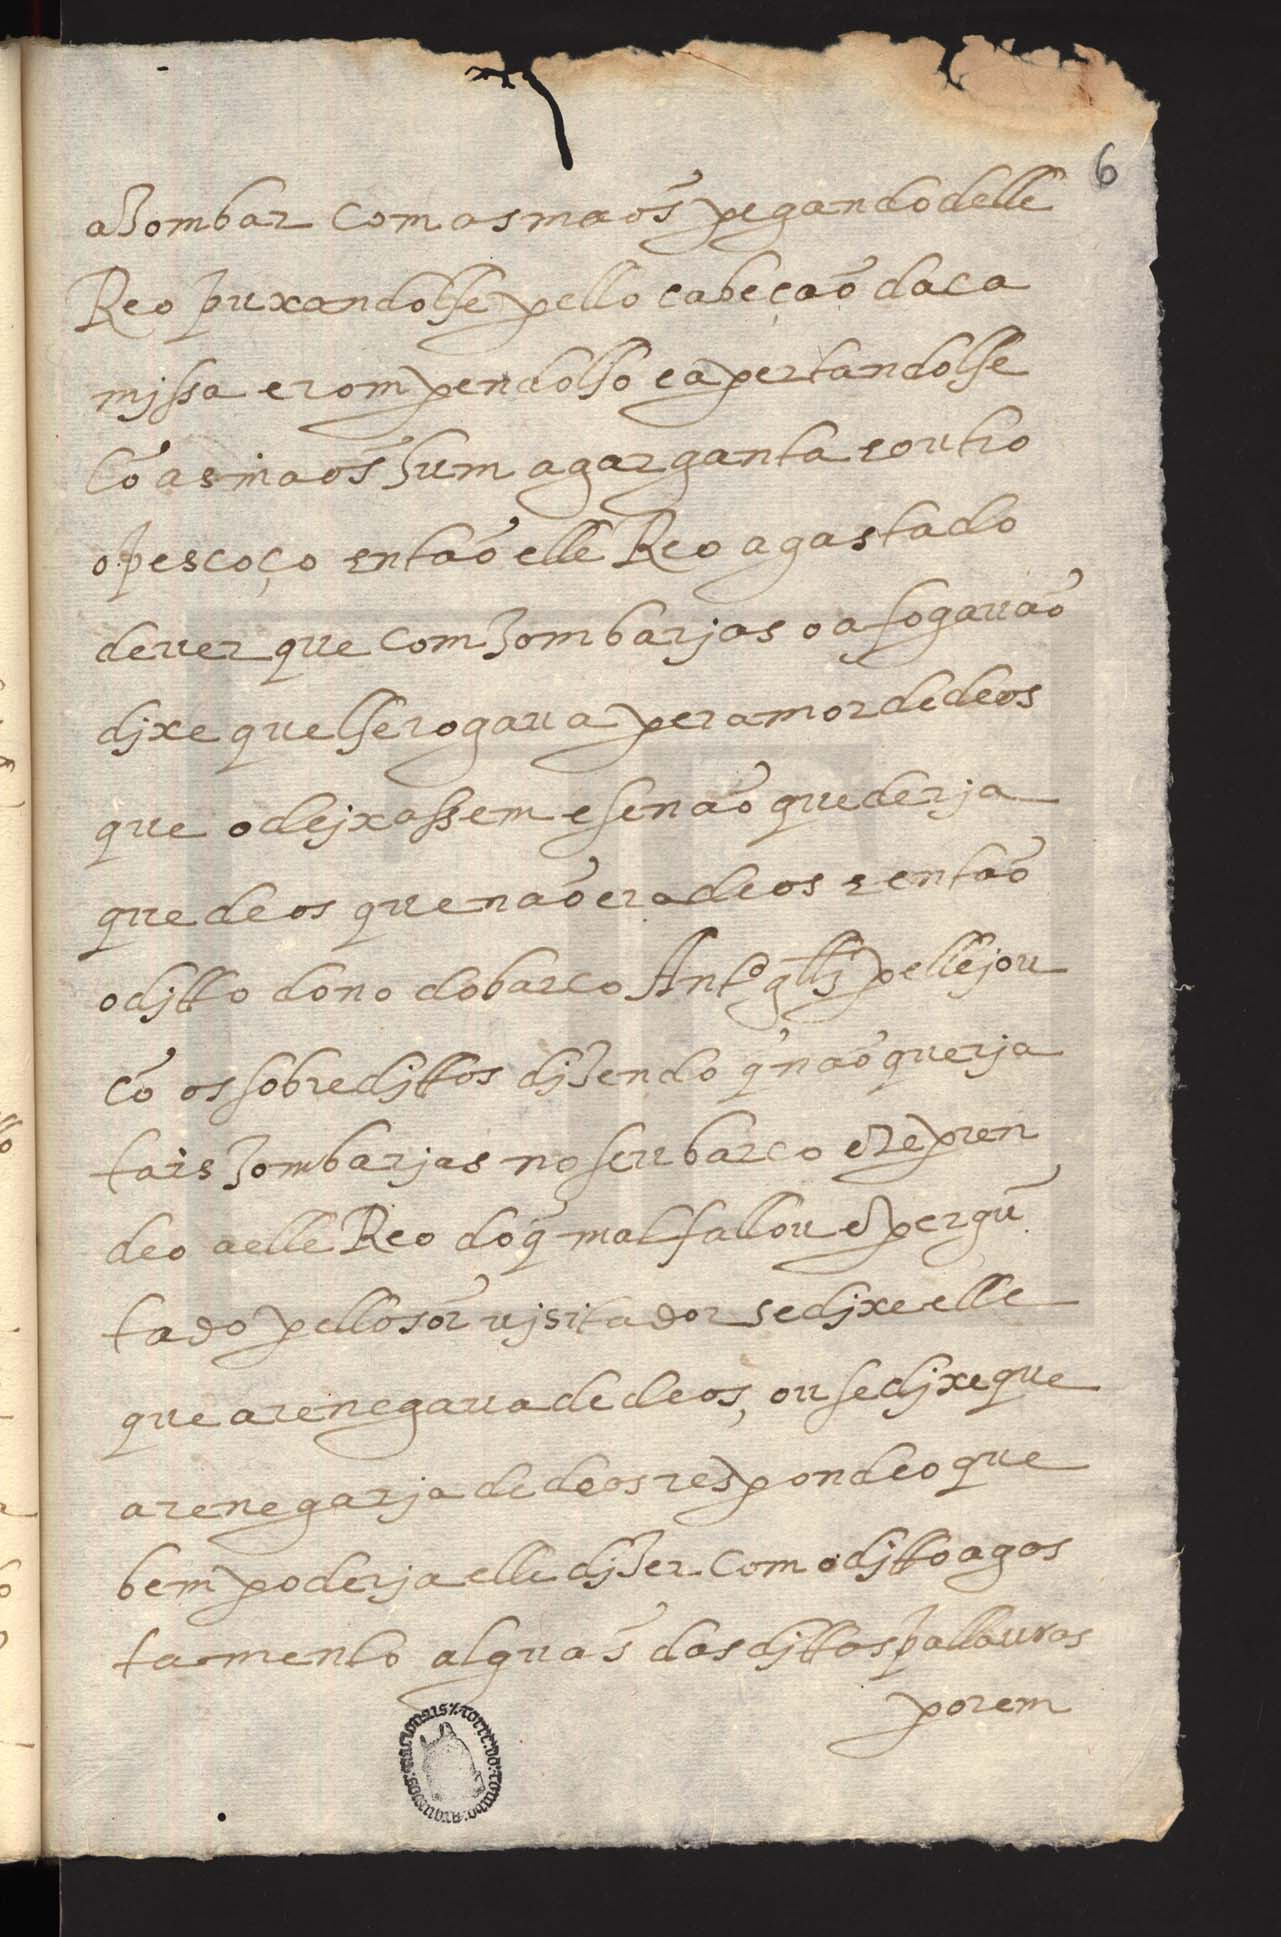 6
a zombar com as maõs pegando delle
Reo puxandolhe pello cabeçaõ da ca
mjssa e rompendolho e apertandolhe
cõ as maõs hum a garganta e outro
o pescoço entaõ elle Reo agastado
de uer que com zombarjas o afogauaõ
djxe que lhe rogaua per amor de deos
que o dejxassem e senaõ que derja
que deos que naõ era deos e entaõ
o djtto dono do barco Antº glz pellejou
cõ os sobredjttos djzendo q̃ naõ querja
tais zombarjas no seu barco e repren
deo a elle Reo do q̃ mal fallou e pergũ
tado pello sor ujsitador se djxe elle
que arenegaua de deos, ou se djxe que
arenegarja de deos respondeo que
bem poderja elle djzer com o djtto agas
tamento alguãs das djttas pallauras
porem
ARQUIVOS NACIONAIS TORRE DO TOMBO